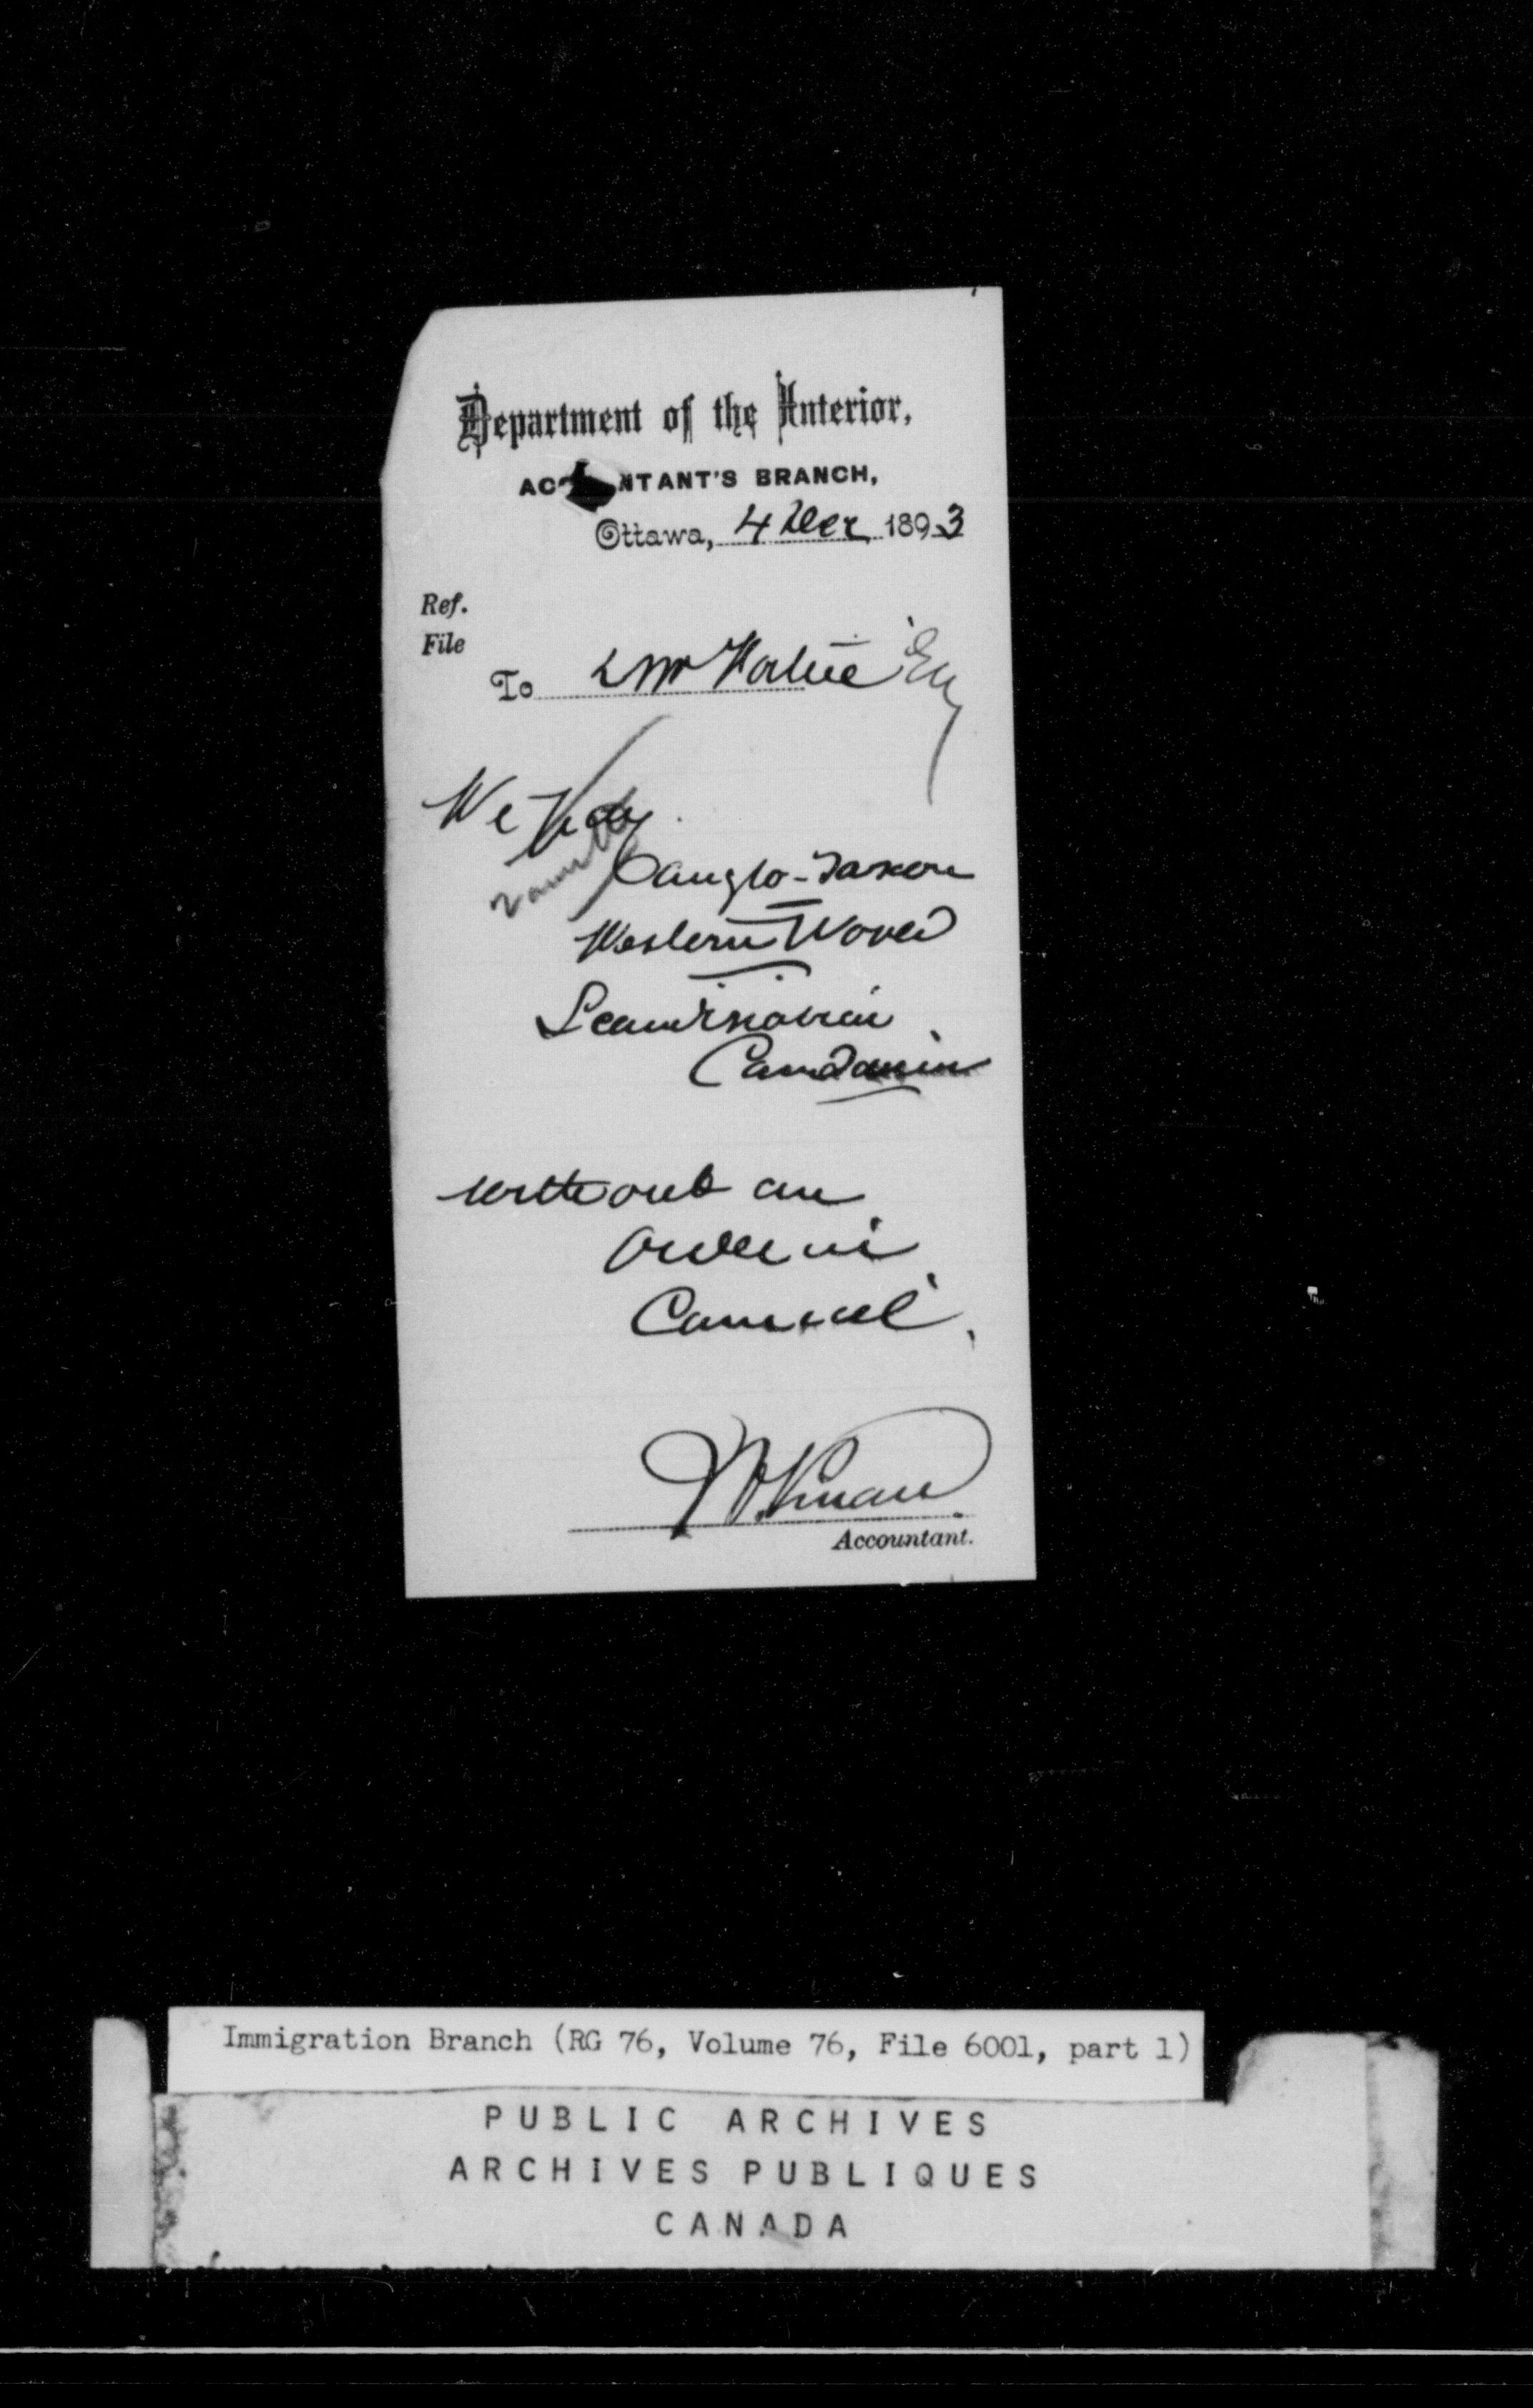 Department of the Interior,
ACCOUNTANT'S BRANCH,
Ottawa, 4 Dec 1893
Ref.
File
To L M Fortier Esq
We pay
Anglo-Saxon
Western World
Scandinavian
Canadian
without an
Order in
Council.
Accountant.
Immigration Branch (RG 76, Volume 76, File 6001, part 1)
PUBLIC ARCHIVES
ARCHIVES PUBLIQUES
CANADA